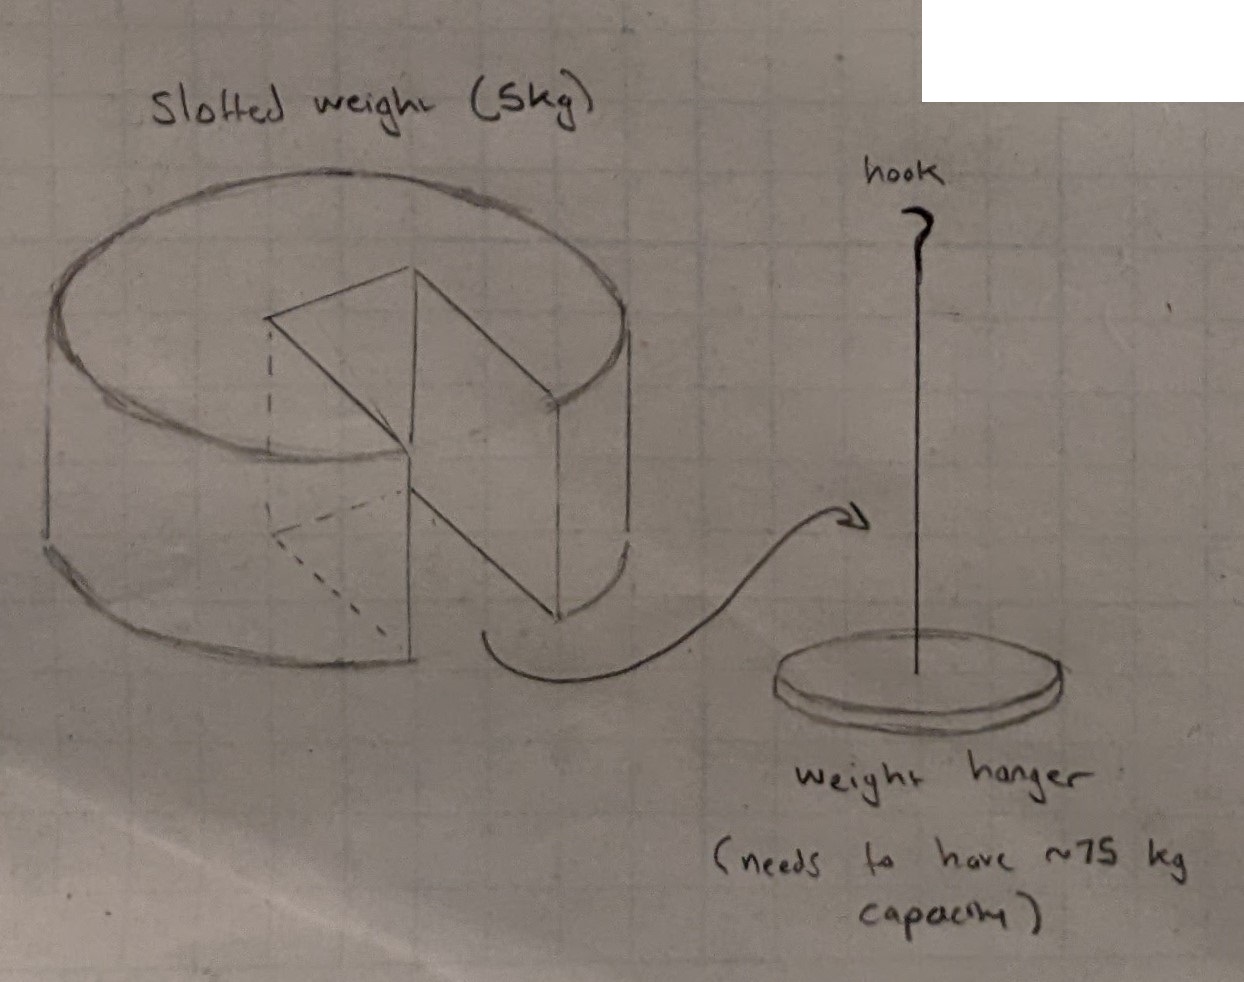 Slotted weight (5kg)
hook
weight hanger
(needs to have ~75 kg
capacity)